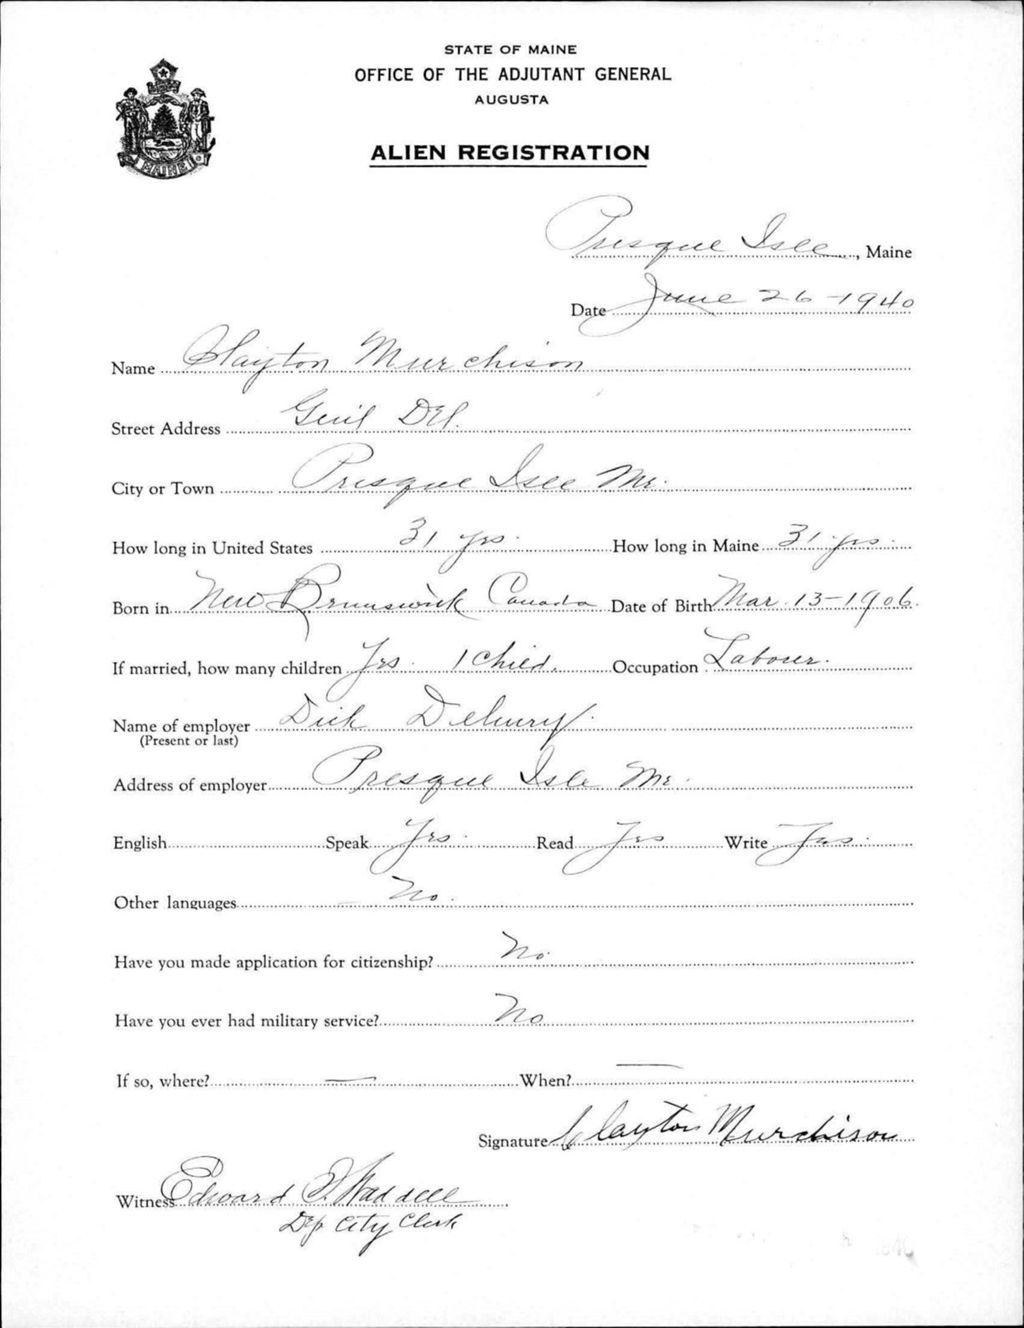 STATE OF MAINE
OFFICE OF THE ADJUTANT GENERAL
AUGUSTA
MAINE
ALIEN REGISTRATION
Presque Isle, Maine
Date June 26-1940
Name Clayton Murchison
Street Address Genl Del.
City or Town Presque Isle Me.
How long in United States 31 yrs. How long in Maine 31 yrs.
Born in New Brunswick Canada Date of Birth Mar. 13-1906.
If married, how many children Yes. 1 Child. Occupation Labourer.
Name of employer Dick
(Present or last)
Address of employer Presque Isle Me.
English Speak Yes. Read Yes Write Yes.
Other languages No.
Have you made application for citizenship? No.
Have you ever had military service? No
If so, where? — When? —
Signature Clayton Murchison
Witness Edward Waddell
Dep City Clerk